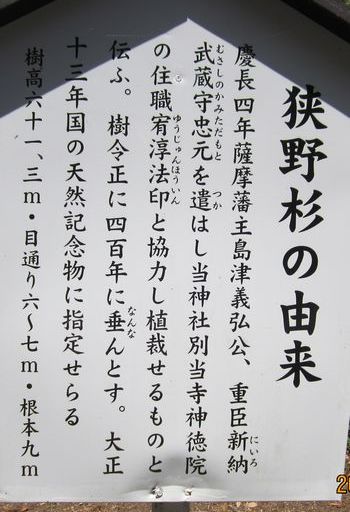 狭野杉の由来
慶長四年薩摩藩主島津義弘公、重臣新納
にいろ
むさしのかみただもと
武蔵守忠元を遣はし当神社別当寺神徳院
つか
ゆうじゅんほういん
の住職宥淳法印と協力し植裁せるものと
伝ふ。樹令正に四百年に垂んとす。大正
なんな
十三年国の天然記念物に指定せらる
樹高六十一、三m・目通り六〜七m・根本九m